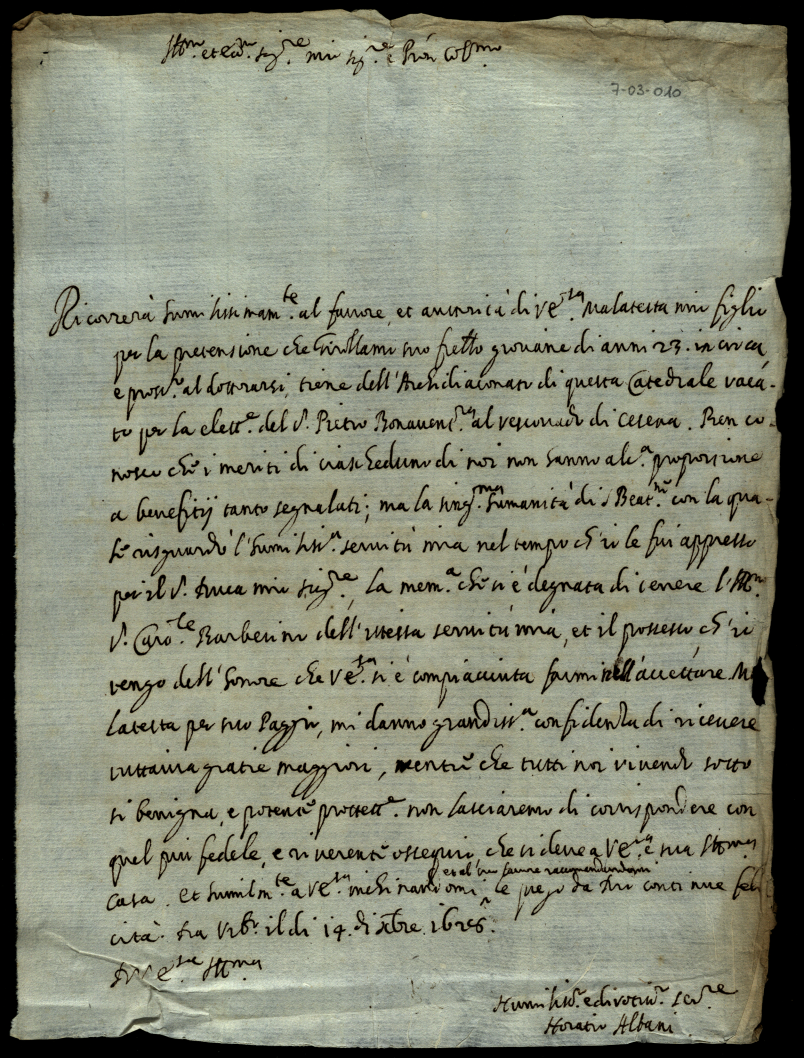 Ill.mo et ecc.mo sig.re mio sig.re e Pròn Col.mo
7-03-010
Ricorrerà humilissimam.te al favore, et autorità di V.E. Malatesta mio figlio
per la pretensione che Girollamo suo fratello giovane di anni 23. in circa,
e pross.o al dottorarsi, tiene dell'Archidiaconato di questa Catedrale vacà-
to per la elett.e del S. Pietro Bonavent.a al vescovado di Cesena. Ben co-
nosco chè i meriti di ciascheduno di noi non hanno alc.a proporsione
a benefitij tanto segnalati; ma la sing.ma humanità di S Beat.ne con la qua-
lè risguardò l'humiliss.a servitù mia nel tempo ch'io le fui appresso
per il S. Duca mio sig.re, la mem.a chè si è degnata di tenere l'Ill.mo
S. Card.le Barberino dell'istessa servitù mia, et il possesso ch'io
tengo dell'honore che V.E. si è compiaciuta farmi nell'accettare Ma
latesta per suo Paggio, mi danno grandiss.a confidenza di ricevere
tuttavia gratie maggiori, mentrè che tutti noi vivendo sotto
sì benigna, e potentè protett.e non lasciaremo di corrispondere con
quel più fedele, e riverentè ossequio che si deve a V.E. e sua Ill.ma
et al suo favore racomandandomi
casa. Et humilm.te a V.E. inchinandomi le prego da Dio continue feli
cità. Da Urb.o il di 14. di xbre. 1626.
Di V.E. Ill.ma
Humiliss.o e divotiss.o ser.re
Horatio Albani